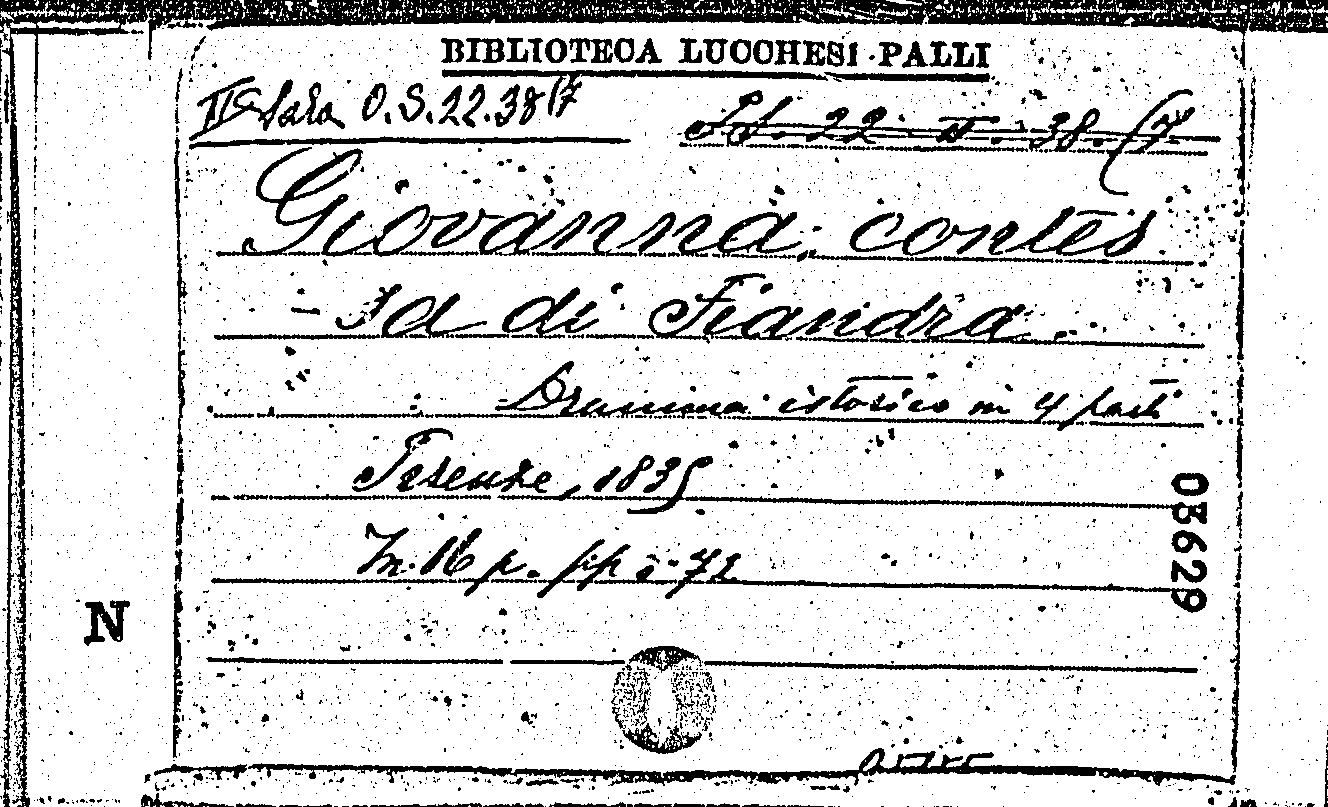 BIBLIOTECA LUCCHESI-PALLI
IIª Sala O.S.22.38(7
22 II. 38. (7
Giovanna, contes
-sa di Fiandra.
Dramma istorico in 4 parti
Firenze, 1835
In 16 p. pp 72
03629
N